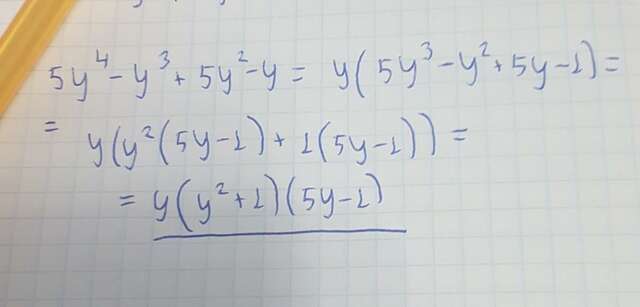 5y⁴-y³+5y²-y = y(5y³-y²+5y-1)=
= y(y²(5y-1)+1(5y-1))=
= y(y²+1)(5y-1)